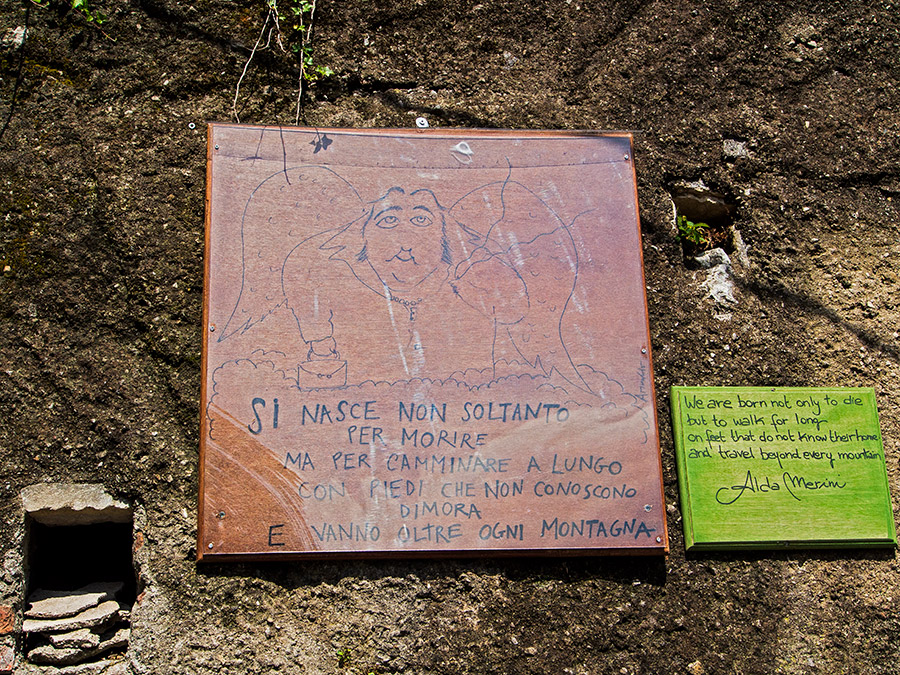 SI NASCE NON SOLTANTO
PER MORIRE
MA PER CAMMINARE A LUNGO
CON PIEDI CHE NON CONOSCONO
DIMORA
E VANNO OLTRE OGNI MONTAGNA
We are born not only to die
but to walk for long
on feet that do not know their home
and travel beyond every mountain
Alda Merini